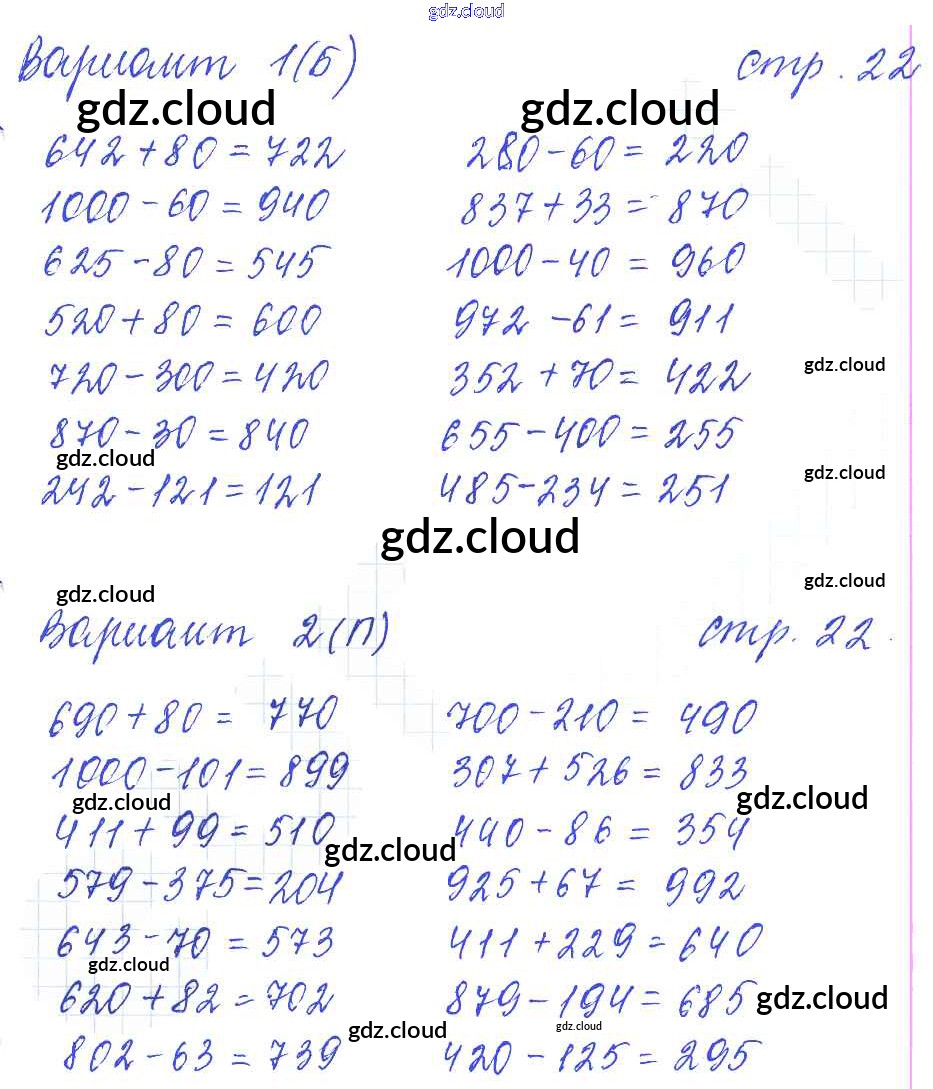 gdz.cloud
Вариант 1(Б) стр. 22
gdz.cloud gdz.cloud
642+80=722 280-60=220
1000-60=940 837+33=870
625-80=545 1000-40=960
520+80=600 972-61=911
720-300=420 352+70=422 gdz.cloud
870-30=840 655-400=255
gdz.cloud gdz.cloud
242-121=121 485-234=251
gdz.cloud
gdz.cloud gdz.cloud
Вариант 2(П) стр. 22.
690+80=770 700-210=490
1000-101=899 307+526=833
gdz.cloud gdz.cloud
411+99=510 440-86=354
gdz.cloud
579-375=204 925+67=992
643-70=573 411+229=640
gdz.cloud
620+82=702 879-194=685 gdz.cloud
gdz.cloud gdz.cloud
802-63=739 420-125=295